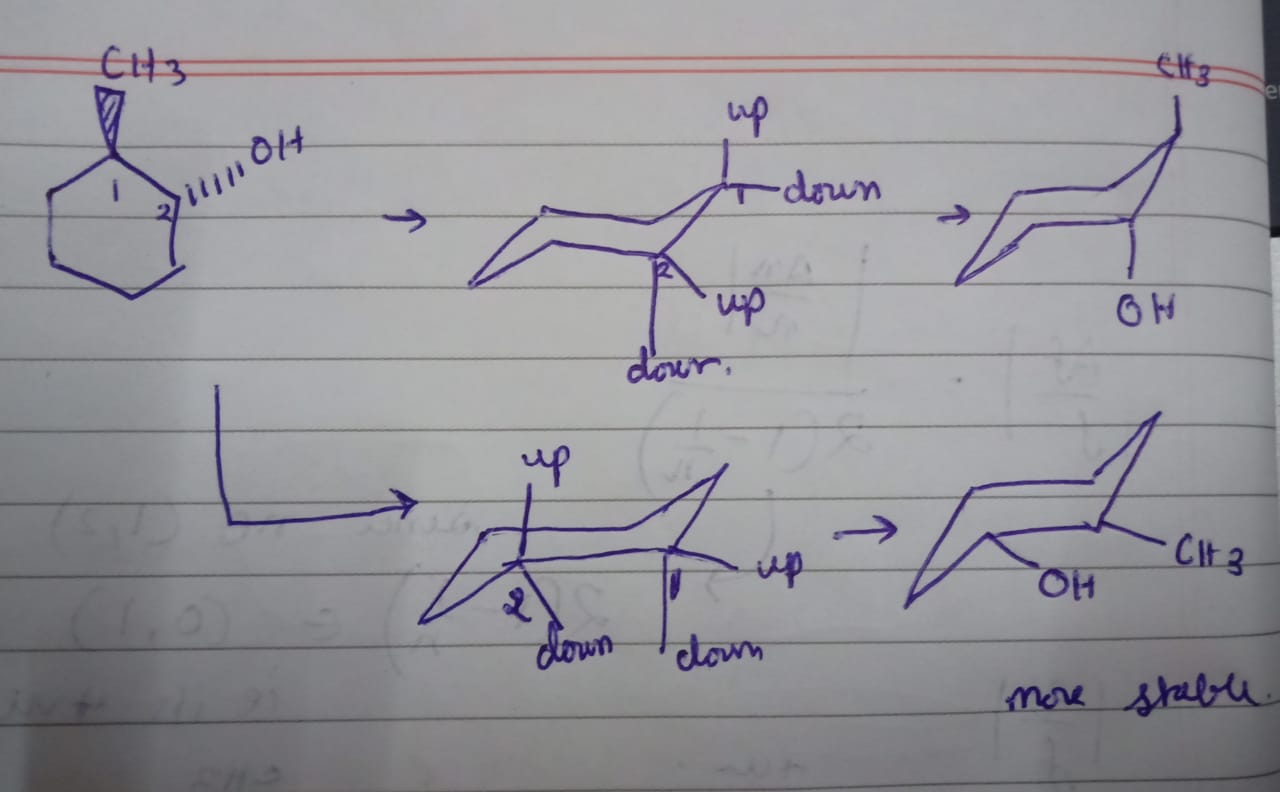 CH3
OH
1
2
up
1 down
2
up
down.
CH3
OH
up
2
down
1
up
down
OH
CH3
more stable.